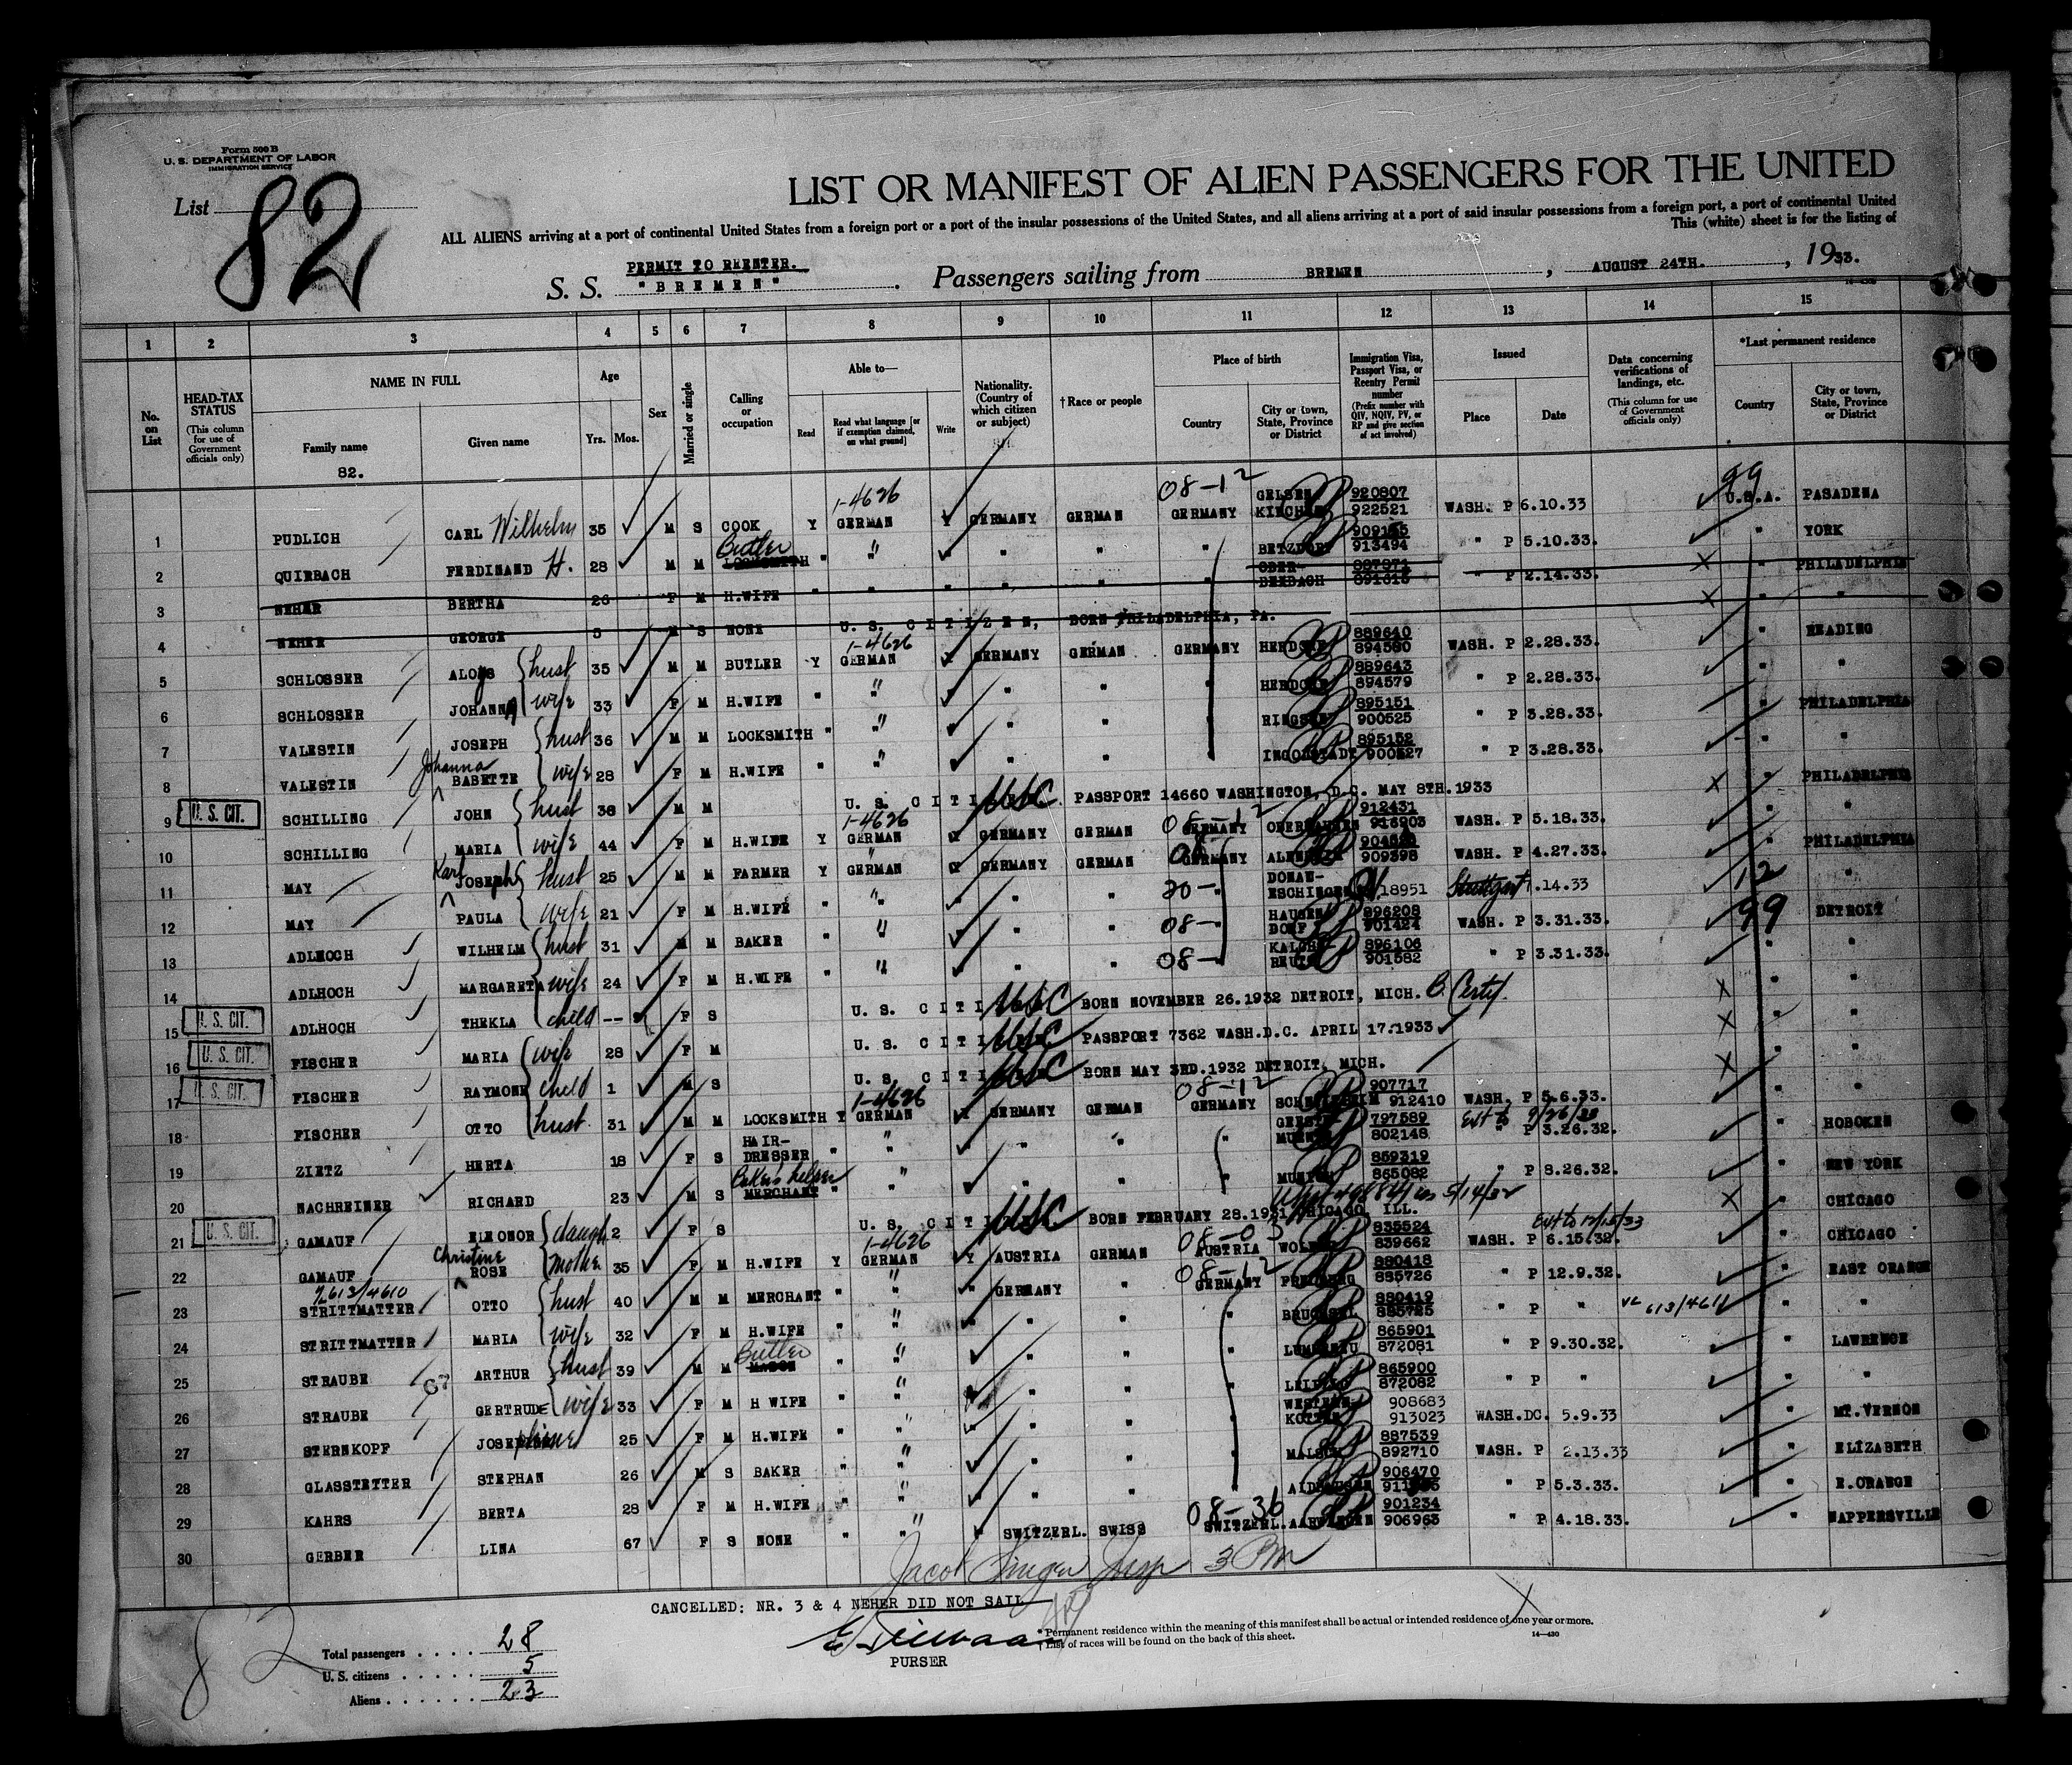 Form 500 B
U. S. DEPARTMENT OF LABOR
IMMIGRATION SERVICE
List 82
LIST OR MANIFEST OF ALIEN PASSENGERS FOR THE UNITED
ALL ALIENS arriving at a port of continental United States from a foreign port or a port of the insular possessions of the United States, and all aliens arriving at a port of said insular possessions from a foreign port, a port of continental United
This (white) sheet is for the listing of
PERMIT TO REENTER.
S. S. "BREMEN" Passengers sailing from BREMEN, AUGUST 24TH., 1933.
1 2 3 4 5 6 7 8 9 10 11 12 13 14 15
No. on List
HEAD-TAX STATUS (This column for use of Government officials only)
NAME IN FULL
Family name
Given name
82.
Age
Yrs. Mos.
Sex
Married or single
Calling or occupation
Able to—
Read
Read what language [or if exemption claimed, on what ground]
Write
Nationality. (Country of which citizen or subject)
†Race or people
Place of birth
Country
City or town, State, Province or District
Immigration Visa, Passport Visa, or Reentry Permit number (Prefix number with QIV, NQIV, PV, or RP and give section of act involved)
Issued
Place
Date
Data concerning verifications of landings, etc. (This column for use of Government officials only)
*Last permanent residence
Country
City or town, State, Province or District
1-4626 08-12 99
1 PUDLICH CARL Wilhelm 35 M S COOK Y GERMAN Y GERMANY GERMAN GERMANY GELSEN KIRCHEN 920807 922521 WASH. P 6.10.33 U.S.A. PASADENA
2 QUIRBACH FERDINAND H. 28 M M Butler LOCKSMITH " " " " " BETZDORF 913494 " P 5.10.33. " YORK
3 NEHER BERTHA 26 F M H.WIFE " " " " " " OBER- BEXBACH " P 2.14.33. " PHILADELPHIA
4 NEHER GEORGE M S NONE U. S. CITIZEN, BORN PHILADELPHIA, PA. " "
1-4626
5 SCHLOSSER ALOYS hust 35 M M BUTLER Y GERMAN Y GERMANY GERMAN GERMANY HERDORF 889640 894580 WASH. P 2.28.33. " READING
6 SCHLOSSER JOHANNA wife 33 F M H.WIFE " " " " HERDORF 889643 894579 " P 2.28.33. " "
7 VALESTIN JOSEPH hust 36 M M LOCKSMITH " " " " 895151 900525 " P 3.28.33. " PHILADELPHIA
8 VALESTIN Johanna BABETTE wife 28 F M H.WIFE " " " " INGOLSTADT 895152 900527 " P 3.28.33. " "
9 U. S. CIT. SCHILLING JOHN hust 38 M M U. S. CITIZEN USC PASSPORT 14660 WASHINGTON, D.C. MAY 8TH.1933 " PHILADELPHIA
1-4626 08-12
10 SCHILLING MARIA wife 44 F M H.WIFE Y GERMAN Y GERMANY GERMAN GERMANY OBERHAUSEN 912431 916903 WASH. P 5.18.33. " "
11 MAY Karl JOSEPH hust 25 M M FARMER Y GERMAN Y GERMANY GERMAN GERMANY 909398 WASH. P 4.27.33. " PHILADELPHIA
12 MAY PAULA wife 21 F M H.WIFE " " " " 20- DONAU- ESCHINGEN 18951 Stuttgart 7.14.33 12 "
13 ADLHOCH WILHELM hust 31 M M BAKER " " " " 08- HAUSEN DORF 896208 901424 WASH. P 3.31.33. 99 DETROIT
14 ADLHOCH MARGARETA wife 24 F M H.WIFE " " " " 08- REUTH 896106 901582 " P 3.31.33. " "
15 U. S. CIT. ADLHOCH THEKLA child -- F S U. S. CITIZEN USC BORN NOVEMBER 26.1932 DETROIT, MICH. B. Certf. " "
16 U. S. CIT. FISCHER MARIA wife 28 F M U. S. CITIZEN USC PASSPORT 7362 WASH.D.C. APRIL 17.1933 " "
17 U. S. CIT. FISCHER RAYMOND child 1 M S U. S. CITIZEN USC BORN MAY 3RD.1932 DETROIT, MICH. " "
1-4626 08-12
18 FISCHER OTTO hust. 31 M M LOCKSMITH Y GERMAN Y GERMANY GERMAN GERMANY 907717 912410 WASH. P 5.6.33. " "
19 ZIETZ HERTA 18 F S HAIR- DRESSER " " " " " 797589 802148 " P 3.26.32. " HOBOKEN
20 NACHREINER RICHARD 23 M S Bakers helper MERCHANT " " " " " 859319 865082 " P 8.26.32. " NEW YORK
21 U. S. CIT. GAMAUF ELEONOR daugh 2 F S U. S. CITIZEN USC BORN FEBRUARY 28.1931 CHICAGO, ILL. " CHICAGO
1-4626 08-03 Ext to 12/15/33
22 GAMAUF Christine ROSE mother 35 F M H.WIFE Y GERMAN Y AUSTRIA GERMAN AUSTRIA 835524 839662 WASH. P 6.15.32. " CHICAGO
08-12
23 STRITTMATTER OTTO hust 40 M M MERCHANT " " " GERMANY " GERMANY 880418 885726 " P 12.9.32. " EAST ORANGE
24 STRITTMATTER MARIA wife 32 F M H.WIFE " " " " BRUCHSAL 880419 885725 " P " " "
25 STRAUBE ARTHUR hust 39 M M Butler MASON " " " " " 865901 872081 " P 9.30.32. " LAWRENCE
26 STRAUBE GERTRUDE wife 33 F M H WIFE " " " " " LEIPZIG 865900 872082 " P " " "
27 STERNKOPF JOSEPHINE 25 F M H.WIFE " " " " 908683 913023 WASH.DC. 5.9.33 " MT.VERNON
28 GLASSTETTER STEPHAN 26 M S BAKER " " " " " MALSCH 887539 892710 WASH. P 2.13.33 " ELIZABETH
29 KAHRS BERTA 28 F M H.WIFE " " " " 906470 " P 5.3.33. " E.ORANGE
08-36
30 GERBER LINA 67 F S NONE " " " SWITZERL. SWISS SWITZERL. AARWANGEN 901234 906963 " P 4.18.33. " WAPPERSVILLE
Jacob Singer Insp 3 Pm
CANCELLED: NR. 3 & 4 NEHER DID NOT SAIL
PURSER
* Permanent residence within the meaning of this manifest shall be actual or intended residence of one year or more.
† List of races will be found on the back of this sheet.
14—430
82
Total passengers 28
U. S. citizens 5
Aliens 23